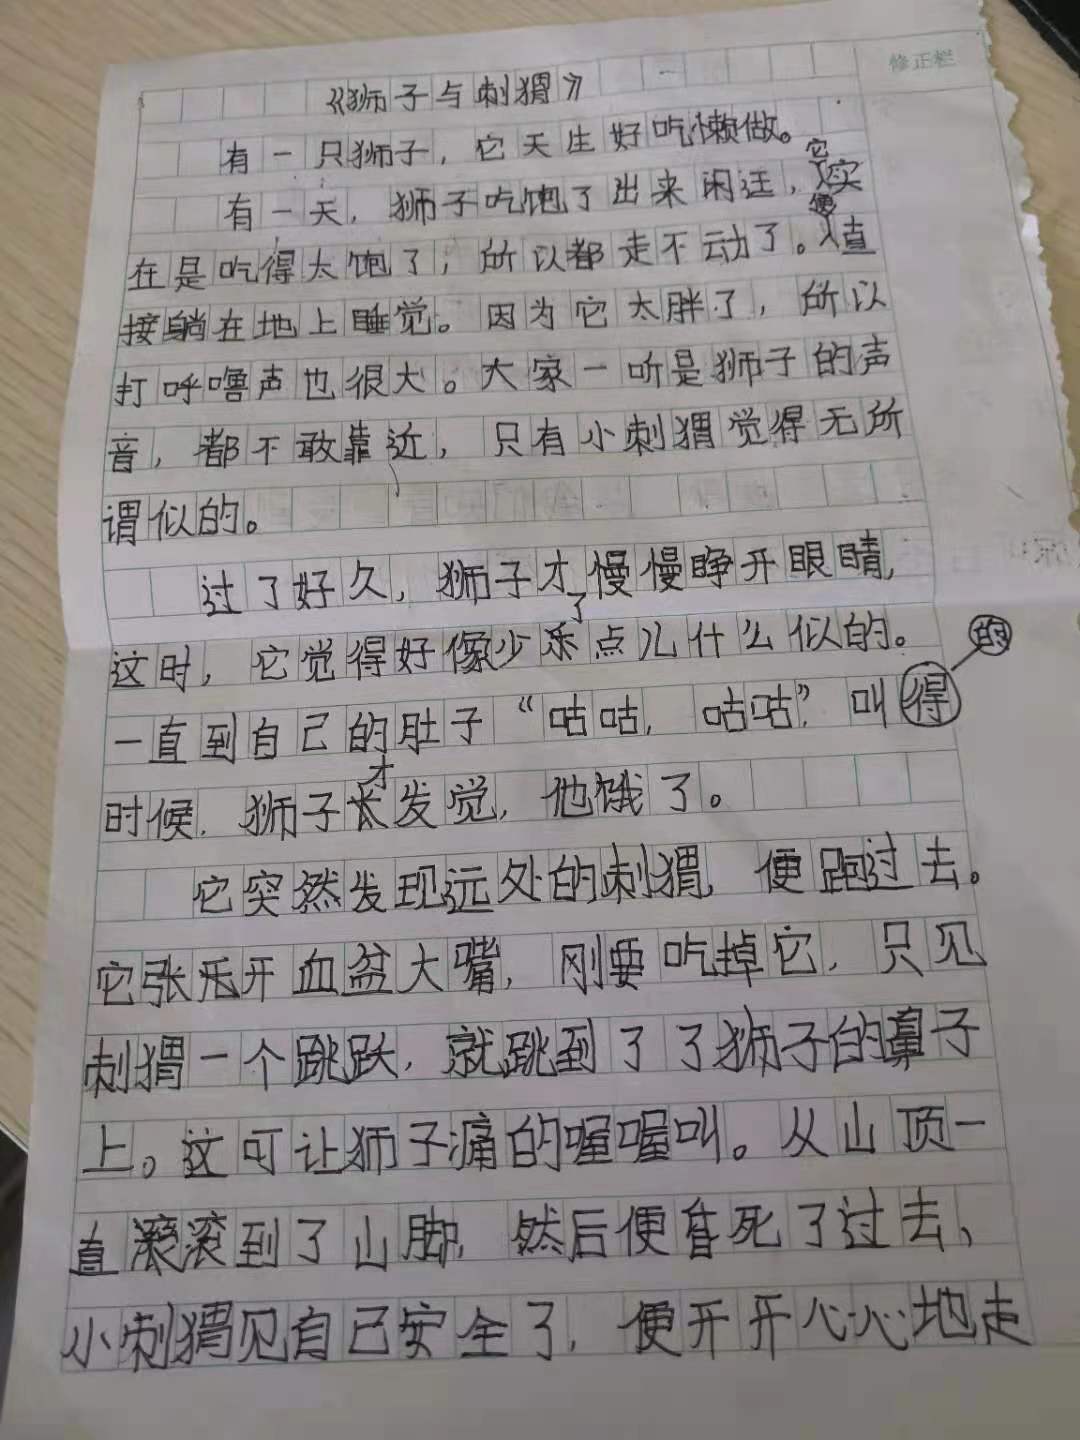 修正栏
《狮子与刺猬》
有一只狮子，它天生好吃懒做。
有一天，狮子吃饱了出来闲迋，它实
在是吃得太饱了，所以都走不动了。便直
接躺在地上睡觉。因为它太胖了，所以
打呼噜声也很大。大家一听是狮子的声
音，都不敢靠近，只有小刺猬觉得无所
谓似的。
过了好久，狮子才慢慢睁开眼睛，
这时，它觉得好像少了点儿什么似的。
一直到自己的肚子“咕咕，咕咕”，叫得的
时候，狮子才发觉，他饿了。
它突然发现远处的刺猬，便跑过去。
它张开血盆大嘴，刚要吃掉它，只见
刺猬一个跳跃，就跳到了了狮子的鼻子
上。这可让狮子痛的喔喔叫。从山顶一
直滚滚到了山脚，然后便昏死了过去、
小刺猬见自己安全了，便开开心心地走